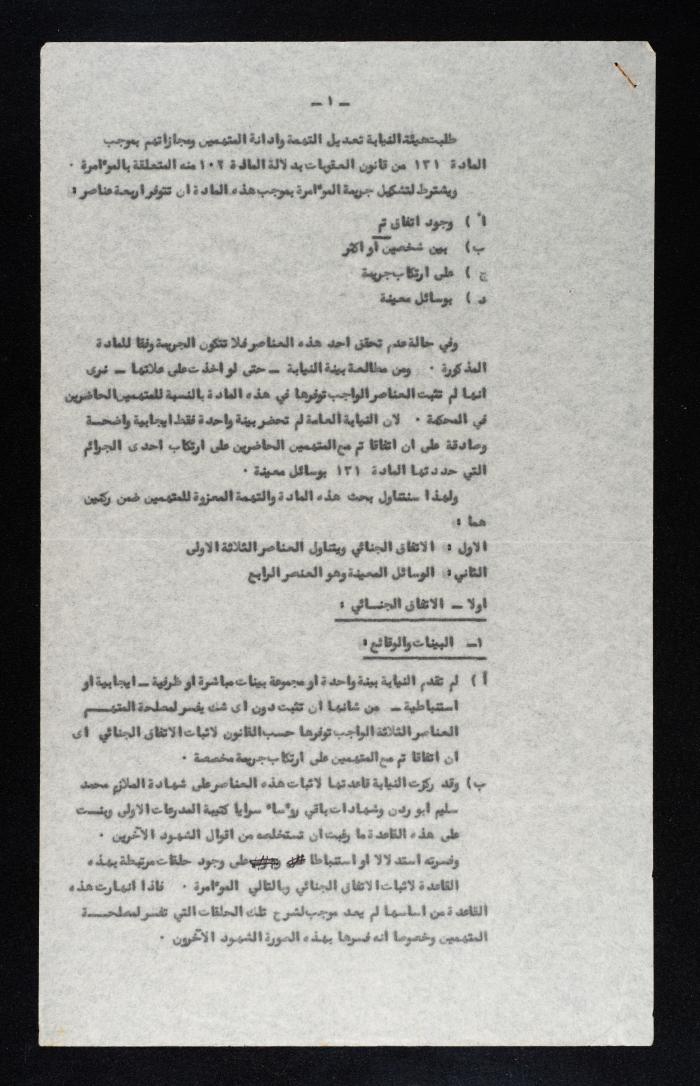 — ١ —
طلبت هيئة النيابة تعديل التهمة وادانة المتهمين ومجازاتهم بموجب
المادة ١٣١ من قانون العقوبات بدلالة المادة ١٠٢ منه المتعلقة بالموٴامرة ٠
ويشترط لتشكيل جريمة الموٴامرة بموجب هذه المادة ان تتوفر اربعة عناصر :
أ ) وجود اتفاق تم
ب) بين شخصين او اكثر
ج ) على ارتكاب جريمة
د ) بوسائل معينة
وفي حالة عدم تحقق احد هذه العناصر فلا تتكون الجريمة وفقا للمادة
المذكورة ٠ ومن مطالعة بينة النيابة — حتى لو اخذت على علاتها — نرى
انها لم تثبت العناصر الواجب توفرها في هذه المادة بالنسبة للمتهمين الحاضرين
في المحكمة ٠ لان النيابة العامة لم تحضر بينة واحدة فقط ايجابية واضحة
وصادقة على ان اتفاقا تم مع المتهمين الحاضرين على ارتكاب احدى الجرائم
التي حددتها المادة ١٣١ بوسائل معينة ٠
ولهذا سنتناول بحث هذه المادة والتهمة المعزوة للمتهمين ضمن ركنين
هما :
الاول : الاتفاق الجنائي ويتناول العناصر الثلاثة الاولى
الثاني : الوسائل المعينة وهو العنصر الرابع
اولا — الاتفاق الجنائي :
١— البينات والوقائع :
أ ) لم تقدم النيابة بينة واحدة او مجموعة بينات مباشرة او ظرفية — ايجابية او
استنباطية — من شانها ان تثبت دون اى شك يفسر لمصلحة المتهم
العناصر الثلاثة الواجب توفرها حسب القانون لاثبات الاتفاق الجنائي اى
ان اتفاقا تم مع المتهمين على ارتكاب جريمة مخصصة ٠
ب) وقد ركزت النيابة قاعدتها لاثبات هذه العناصر على شهادة الملازم محمد
سليم ابو ردن وشهادات باقي روٴساء سرايا كتيبة المدرعات الاولى وبنت
على هذه القاعدة ما رغبت ان تستخلصه من اقوال الشهود الآخرين ٠
وفسرته استدلالا او استنباطا على وجود حلقات مرتبطة بهذه
القاعدة لاثبات الاتفاق الجنائي وبالتالي الموٴامرة ٠ فاذا انهارت هذه
القاعدة من اساسها لم يعد موجب لشرح تلك الحلقات التي تفسر لمصلحة
المتهمين وخصوصا انه فسرها بهذه الصورة الشهود الآخرون ٠